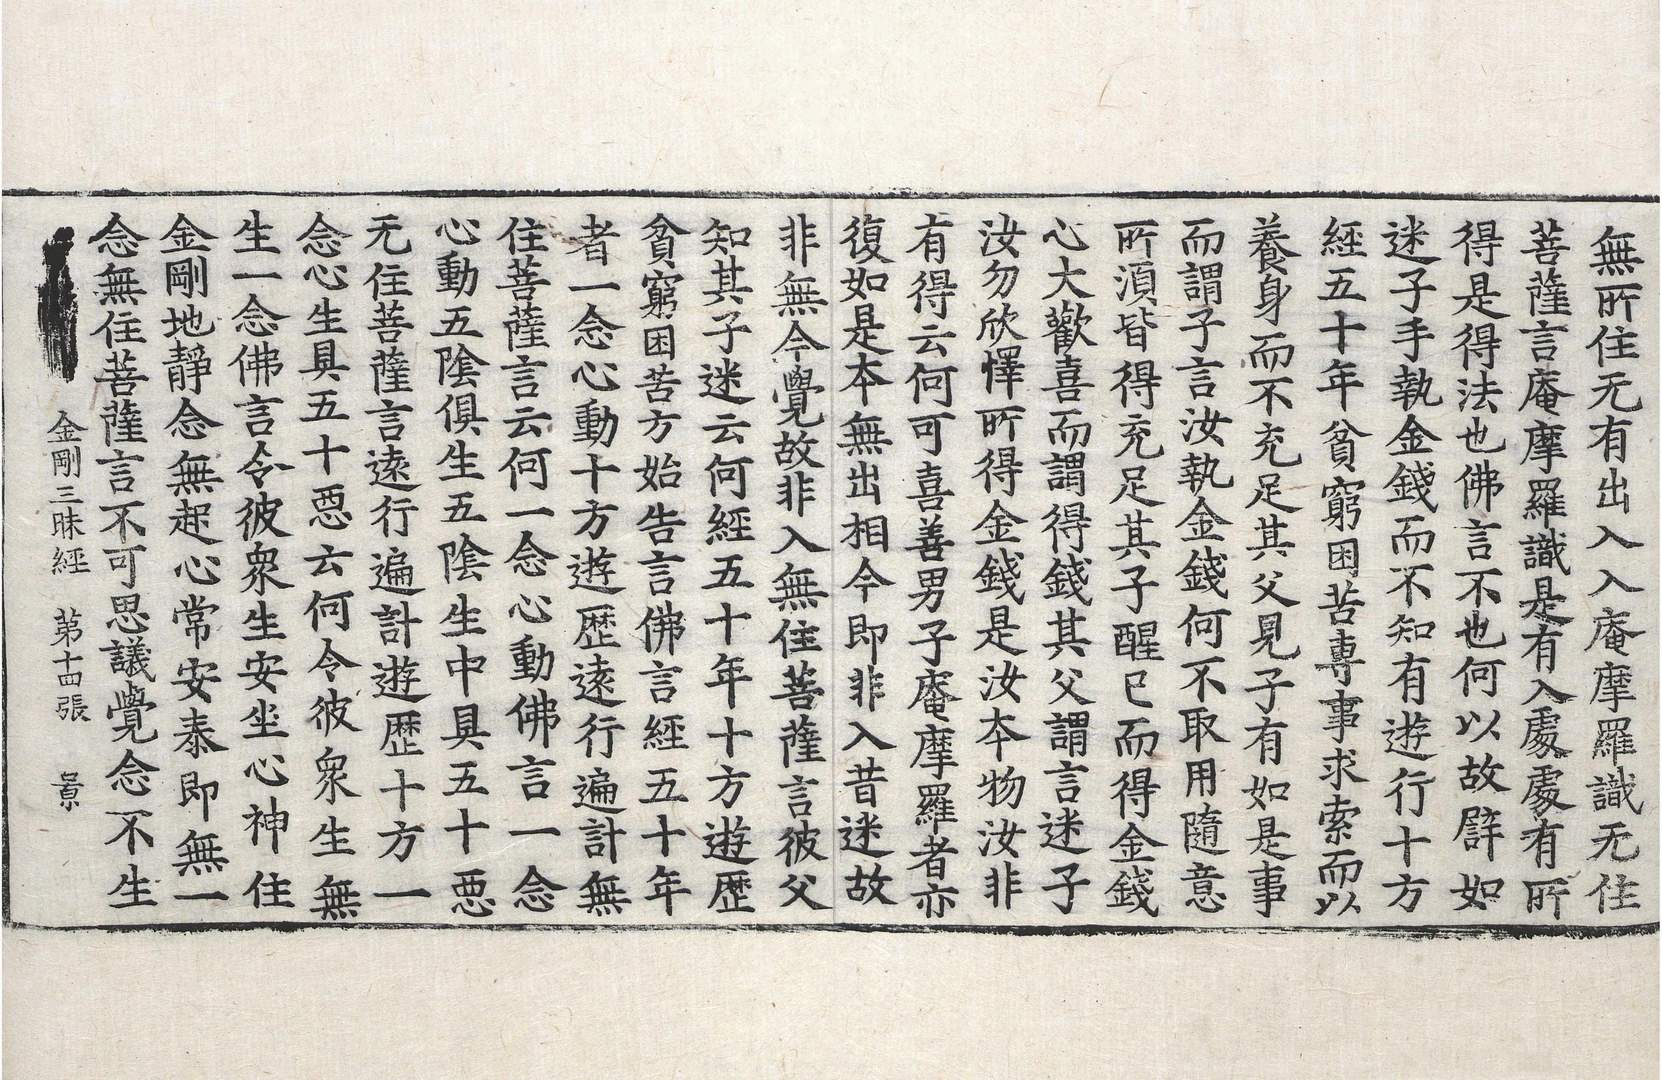 無所住无有出入入庵摩羅識无住
菩薩言庵摩羅識是有入處處有所
得是得法也佛言不也何以故辟如
迷子手執金錢而不知有遊行十方
經五十年貧窮困苦專事求索而以
養身而不充足其父見子有如是事
而謂子言汝執金錢何不取用隨意
所須皆得充足其子醒已而得金錢
心大歡喜而謂得錢其父謂言迷子
汝勿欣懌所得金錢是汝本物汝非
有得云何可喜善男子庵摩羅者亦
復如是本無出相今即非入昔迷故
非無今覺故非入無住菩薩言彼父
知其子迷云何經五十年十方遊歷
貧窮困苦方始告言佛言經五十年
者一念心動十方遊歷遠行遍計無
住菩薩言云何一念心動佛言一念
心動五陰俱生五陰生中具五十惡
无住菩薩言遠行遍計遊歷十方一
念心生具五十惡云何令彼衆生無
生一念佛言令彼衆生安坐心神住
金剛地靜念無起心常安泰即無一
念無住菩薩言不可思議覺念不生
金剛三昧經 第十四張 景